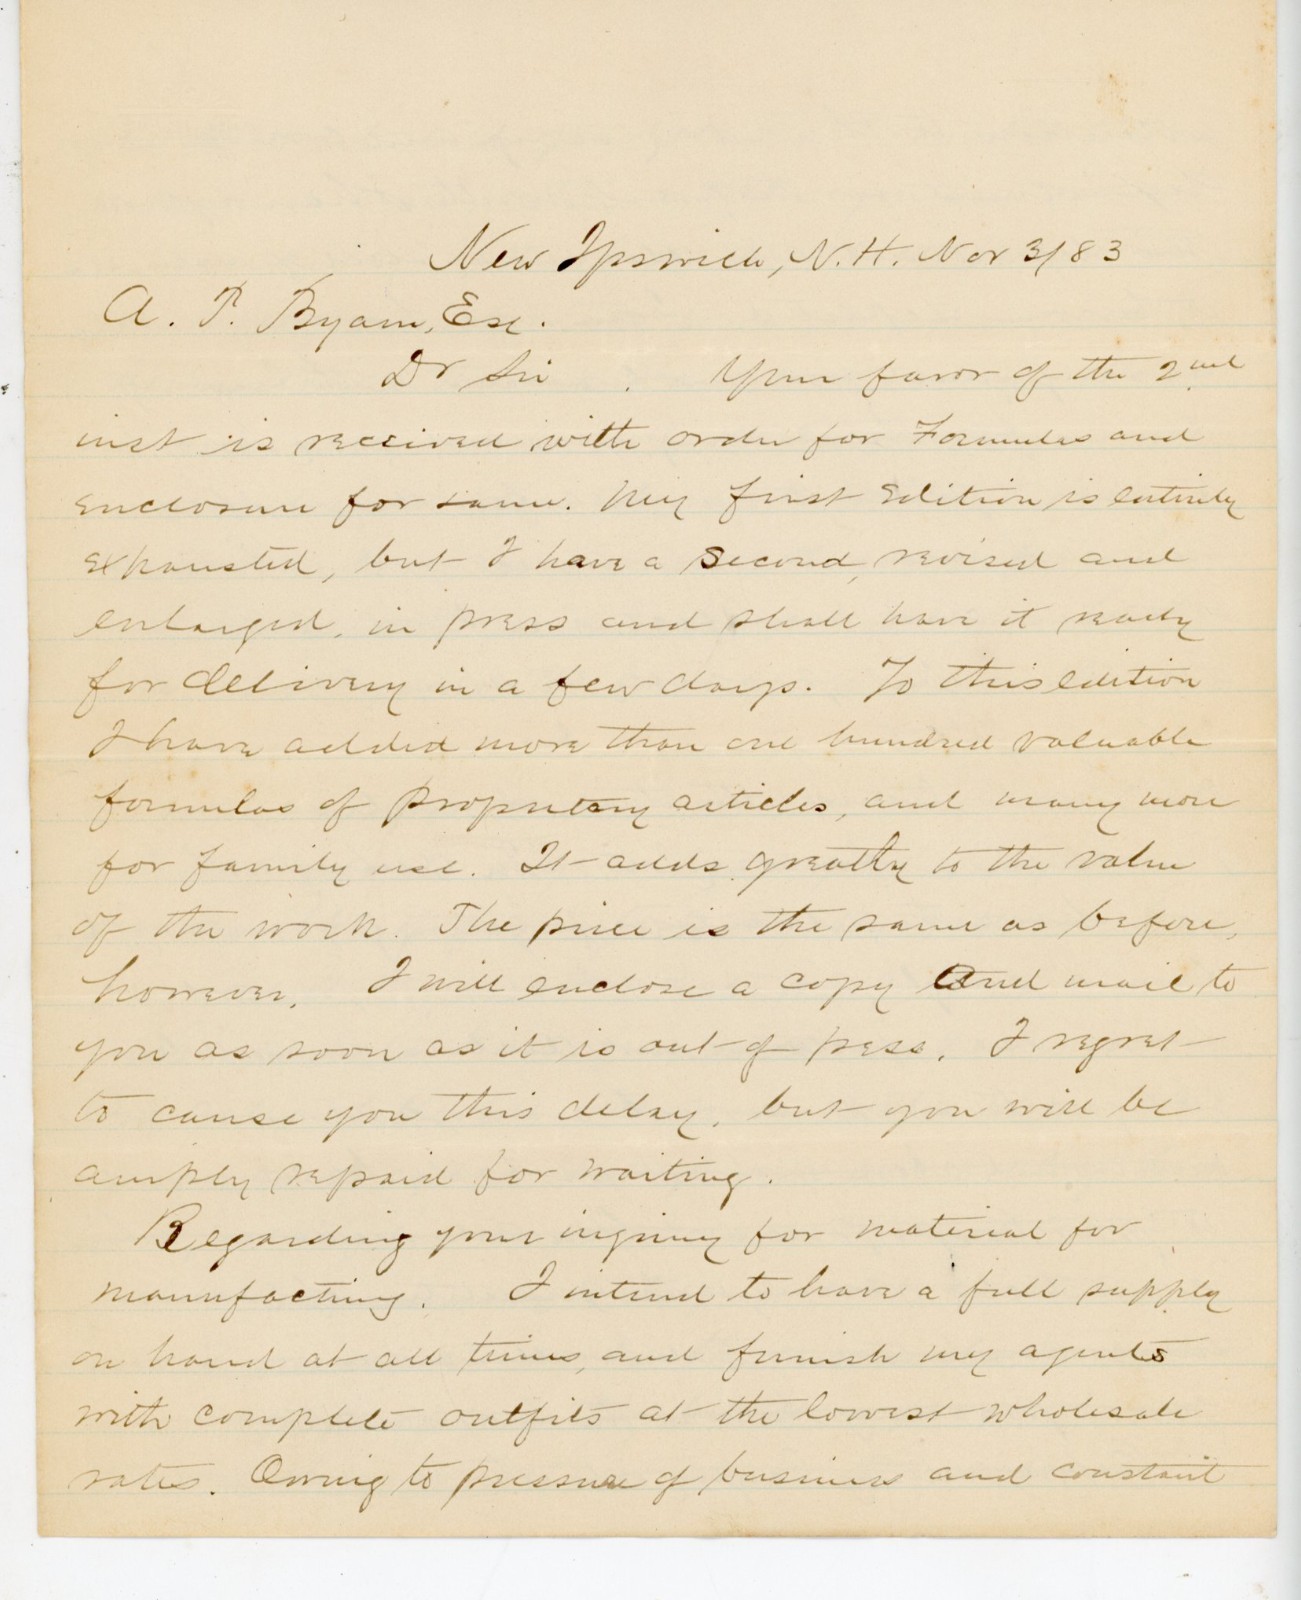 New Ipswich, N.H. Nov 3/83
A. P. Byam, Esq.
Dr Sir . Your favor of the 2nd
inst is received with order for Formulas and
enclosure for same. My first edition is entirely
exhausted, but I have a second, revised and
enlarged, in press and shall have it ready
for delivery in a few days. To this edition
I have added more than one hundred valuable
formulas of proprietary articles, and many more
for family use. It adds greatly to the value
of the work. The price is the same as before,
however. I will enclose a copy and mail to
you as soon as it is out of press. I regret
to cause you this delay, but you will be
amply repaid for waiting.
Regarding your inquiry for material for
manufacting. I intend to have a full supply
on hand at all times, and furnish my agents
with complete outfits at the lowest wholesale
rates. Owing to pressure of business and constant